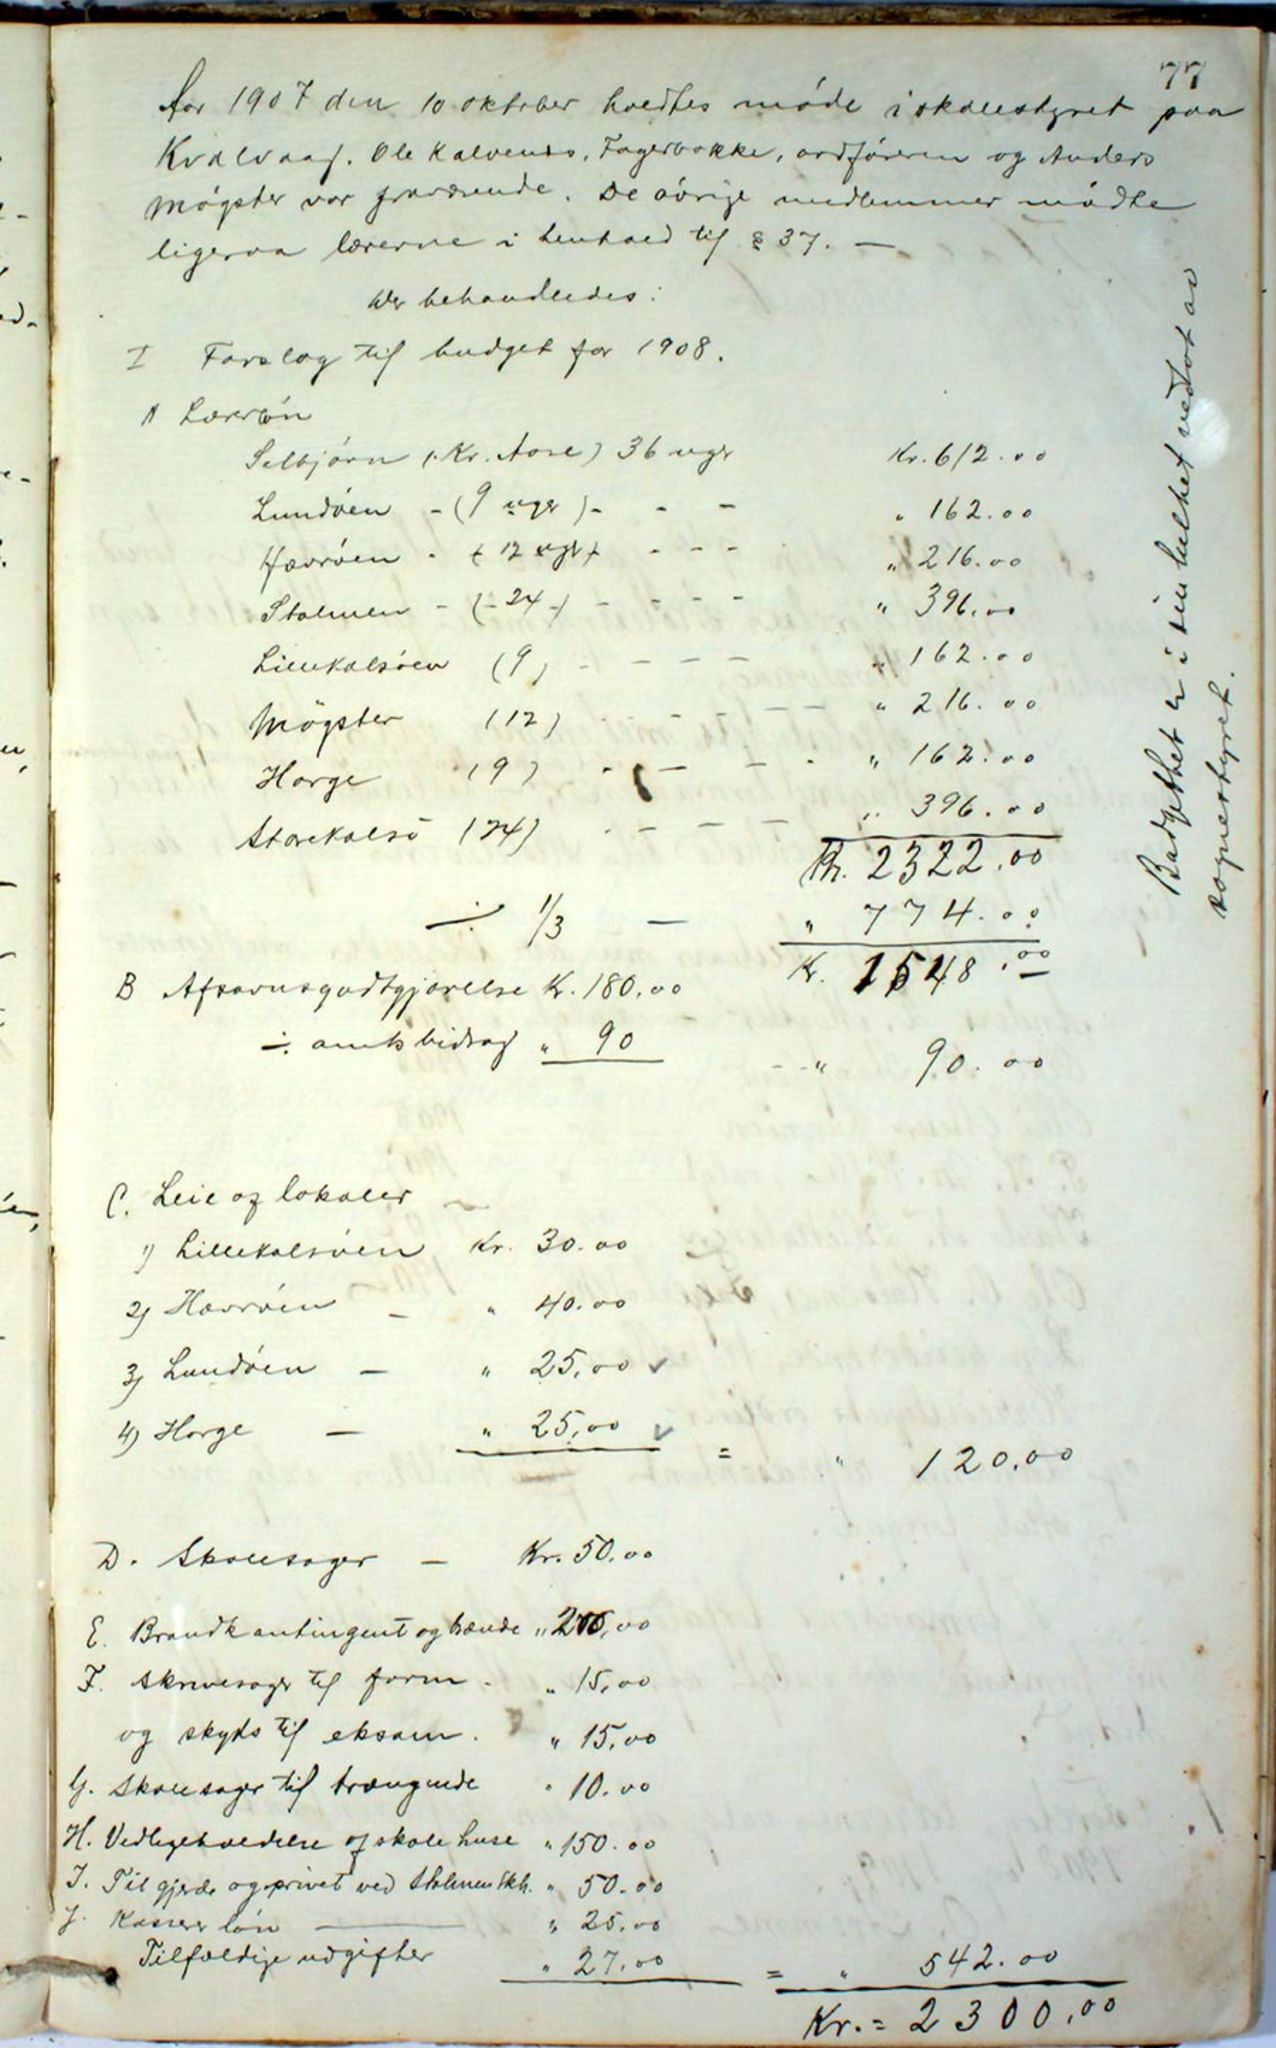 77
Aar 1907 den 10 oktober holdtes møde i skolestyret paa
Kvalvaag. Ole Kalvenes, Fagerbakke, ordføreren og Anders
Møgster var fraværende. De øvrige medlemmer mødte
ligesaa lærerne i henhold til § 37. —
Der behandledes:
I Forslag til budget for 1908.
A Lærerløn
Selbjørn (Kr. Aase) 36 uger Kr. 612.00
Lundøen - (9 uger) - - - " 162.00
Havrøen - (12 uger) - - - " 216.00
Stolmen - (-24-) - - - - " 396.00
Lillekalsøen (9) - - - - " 162.00
Møgster (12) - - - - " 216.00
Horge (9) - - - - " 162.00
Storekalsø (24) - - - - " 396.00
Kr. 2322.00
÷ 1/3 — " 774.00
Kr. 1548.00
B Afsavnsgodtgjørelse Kr. 180.00
÷ amtsbidrag " 90 - - " 90.00
C. Leie af lokaler —
1) Lillekalsøen Kr. 30.00
2) Havrøen — " 40.00
3) Lundøen — " 25,00 ✓
4) Horge — " 25,00 ✓ = " 120.00
D. Skolesager — Kr. 50.00
E. Brandkontingent og brænde " 200,00
F. Skrivesager til form. " 15,00
og skyds til eksam. " 15,00
G. Skolesager til trængende " 10.00
H. Vedligeholdelse af skolehuse " 150.00
I. Til gjerde og privet ved Stolmen skh. " 50.00
J. Kasserer løn — " 25.00
Tilfældige udgifter " 27.00 = " 542.00
Kr. = 2300,00
Budgettet er i sin helhet vedtat av
sognestyret.